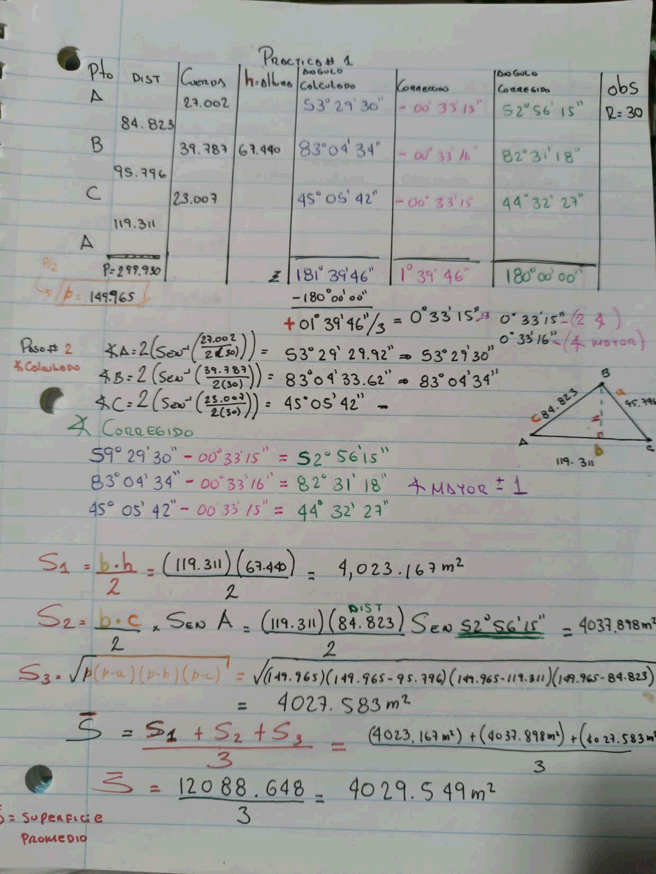 Practica # 1
Pto DIST CUERDA h=Altura ANGULO CALCULADO CORRECCION ANGULO CORREGIDO obs
A 27.002 53° 29' 30" - 00° 33' 15" 52° 56' 15" R=30
84.823
B 39.787 67.440 83° 04' 34" - 00° 33' 16" 82° 31' 18"
95.796
C 23.007 45° 05' 42" - 00° 33' 15 44° 32' 27"
119.311
A
P= 299.930 Σ 181° 39' 46" 1° 39' 46" 180° 00' 00"
P/2
p = 149.965
- 180° 00' 00"
+ 01° 39' 46"/3 = 0° 33' 15".3 0° 33' 15" - (2 ∡)
0° 33' 16" - (∡ MAYOR)
Paso # 2
∡ Calculado
∡A = 2(Sen⁻¹(27.002/2(30))) = 53° 29' 29.92" ⇒ 53° 29' 30"
∡B = 2(Sen⁻¹(39.787/2(30))) = 83° 04' 33.62" ⇒ 83° 04' 34"
∡C = 2(Sen⁻¹(23.007/2(30))) = 45° 05' 42" -
B
C 84.823 a 95.796
A b C
119.311
∡ CORREGIDO
59° 29' 30" - 00° 33' 15" = 52° 56' 15"
83° 04' 34" - 00° 33' 16" = 82° 31' 18" ∡ MAYOR ± 1
45° 05' 42" - 00° 33' 15" = 44° 32' 27"
S1 = b·h/2 = (119.311)(67.440)/2 = 4,023.167 m²
S2 = b·c/2 × SEN A = (119.311)(84.823)/2 SEN 52° 56' 15" = 4037.898 m²
DIST
S3 = √p(p-a)(p-b)(p-c) = √(149.965)(149.965-95.796)(149.965-119.311)(149.965-84.823)
= 4027.583 m²
S̄ = S1 + S2 + S3/3 = (4023,167 m²) + (4037.898 m²) + (4027.583 m²/3
S̄ = 12088.648/3 = 4029.549 m²
= SUPERFICIE
PROMEDIO